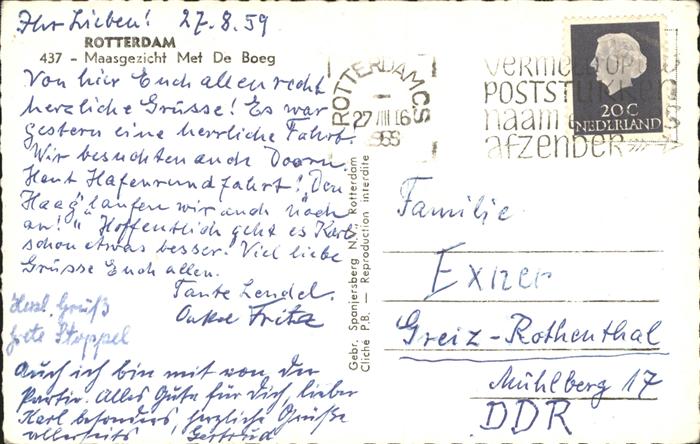 Ihr Lieben! 27.8.59
ROTTERDAM
437 - Maasgezicht Met De Boeg
Von hier Euch allen recht
herzliche Grüsse! Es war
gestern eine herrliche Fahrt.
Wir besuchten auch Doorn.
Heut Hafenrundfahrt! "Den
Haag" laufen wir auch noch
an!" Hoffentlich geht es Karl
schon etwas besser. Viel liebe
Grüsse Euch allen.
Tante Lendel.
Onkel Fritz
Herzl. Grüß
Grete Stoppel
Auch ich bin mit von der
Partie. Alles Gute für Dich, lieber
Karl besonders, herzliche Grüße
allerseits Gertrud
Gebr. Spanjersberg N.V., Rotterdam
Cliché P.B. — Reproduction interdite
ROTTERDAM CS
27 VIII 16
poststukken
naam
afzender
20 C
NEDERLAND
Familie
Exner
Greiz-Rothenthal
Mühlberg 17
DDR